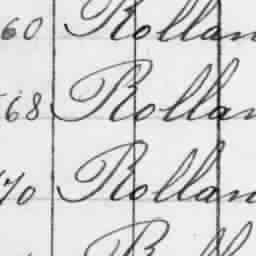 60 Rollan
68 Rollan
70 Rollan